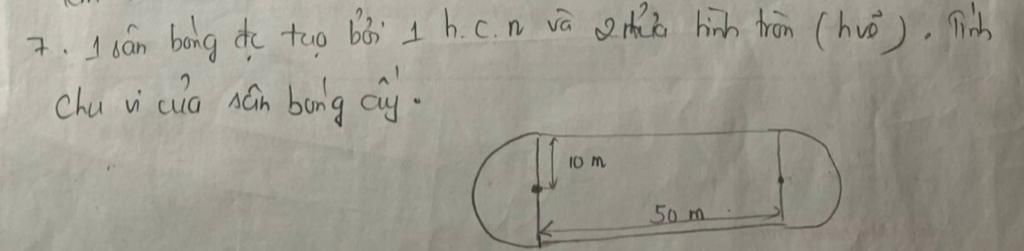 7. 1 sân bóng đc tạo bởi 1 h.c.n và 2 nửa hình tròn (hvẽ). Tính
chu vi của sân bóng ấy.
10 m
50 m